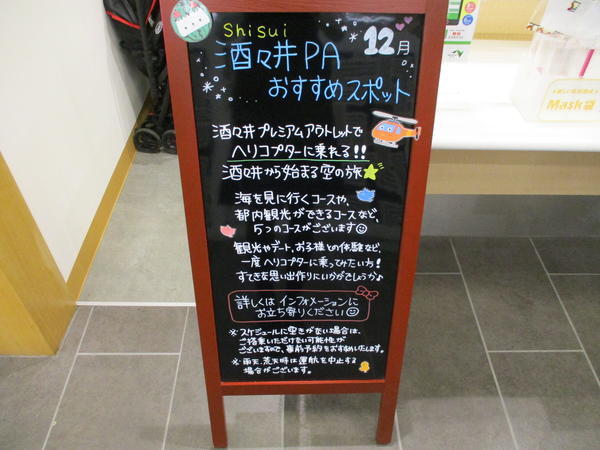 Shisui
12月
酒々井PA
おすすめスポット
酒々井プレミアムアウトレットで
ヘリコプターに乗れる!!
酒々井から始まる空の旅
海を見に行くコースや、
都内観光ができるコースなど、
5つのコースがございます
観光やデート、お子様との体験など、
一度ヘリコプターに乗ってみたい方!
すてきな思い出作りにいかがでしょうか♪
詳しくは インフォメーションに
お立ち寄りください
※スケジュールに空きがない場合は、
ご搭乗いただけない可能性が
ございますので、事前予約をおすすめいたします。
※雨天、荒天時は運航を中止する
場合がございます。
Mask袋